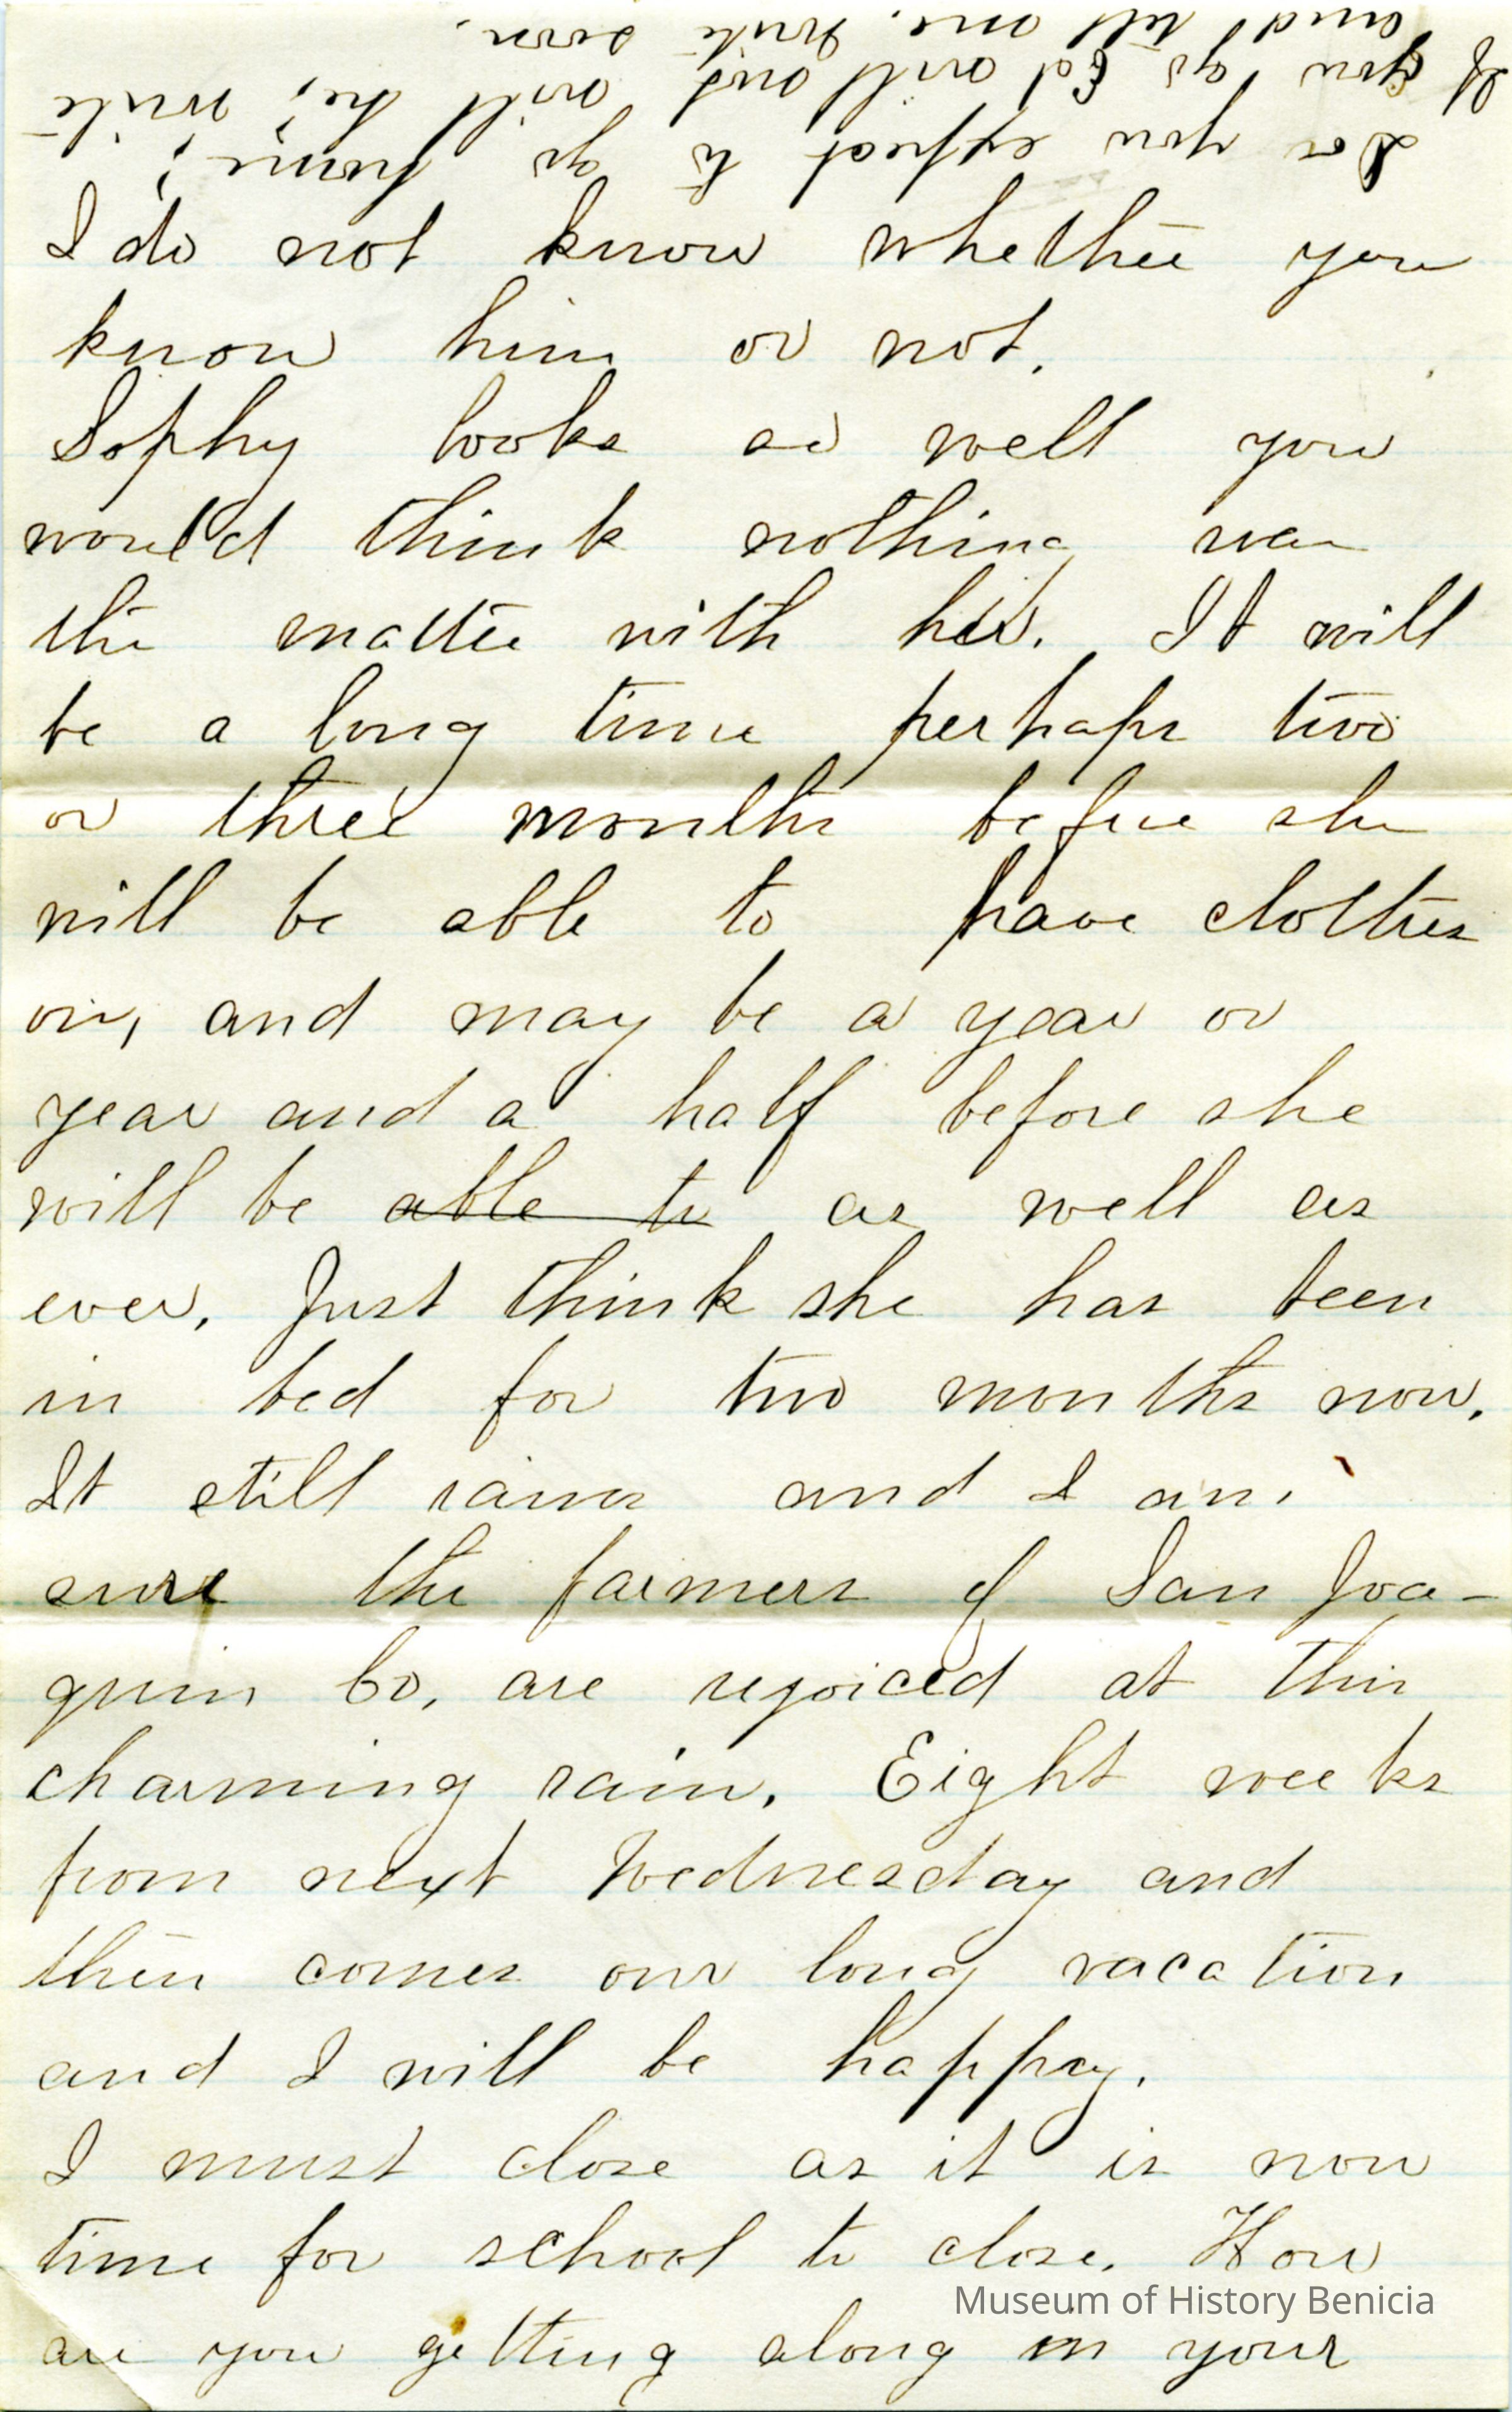 Doe you expect to go home?
If you go Ed will and will he? write
and tell me. Write soon.
I do not know whether you
know him or not.
Sophy looks so well you
would think nothing was
the matter with her. It will
be a long time perhaps two
or three months before she
will be able to have clothes
on, and may be a year or
year and a half before she
will be able to as well as
ever. Just think she has been
in bed for two months now.
It still rains and I am
sure the farmers of San Joa-
quin Co. are rejoiced at this
charming rain. Eight weeks
from next Wednesday and
then comes our long vacation
and I will be happy.
I must close as it is now
time for school to close. How
are you getting along in your
Museum of History Benicia